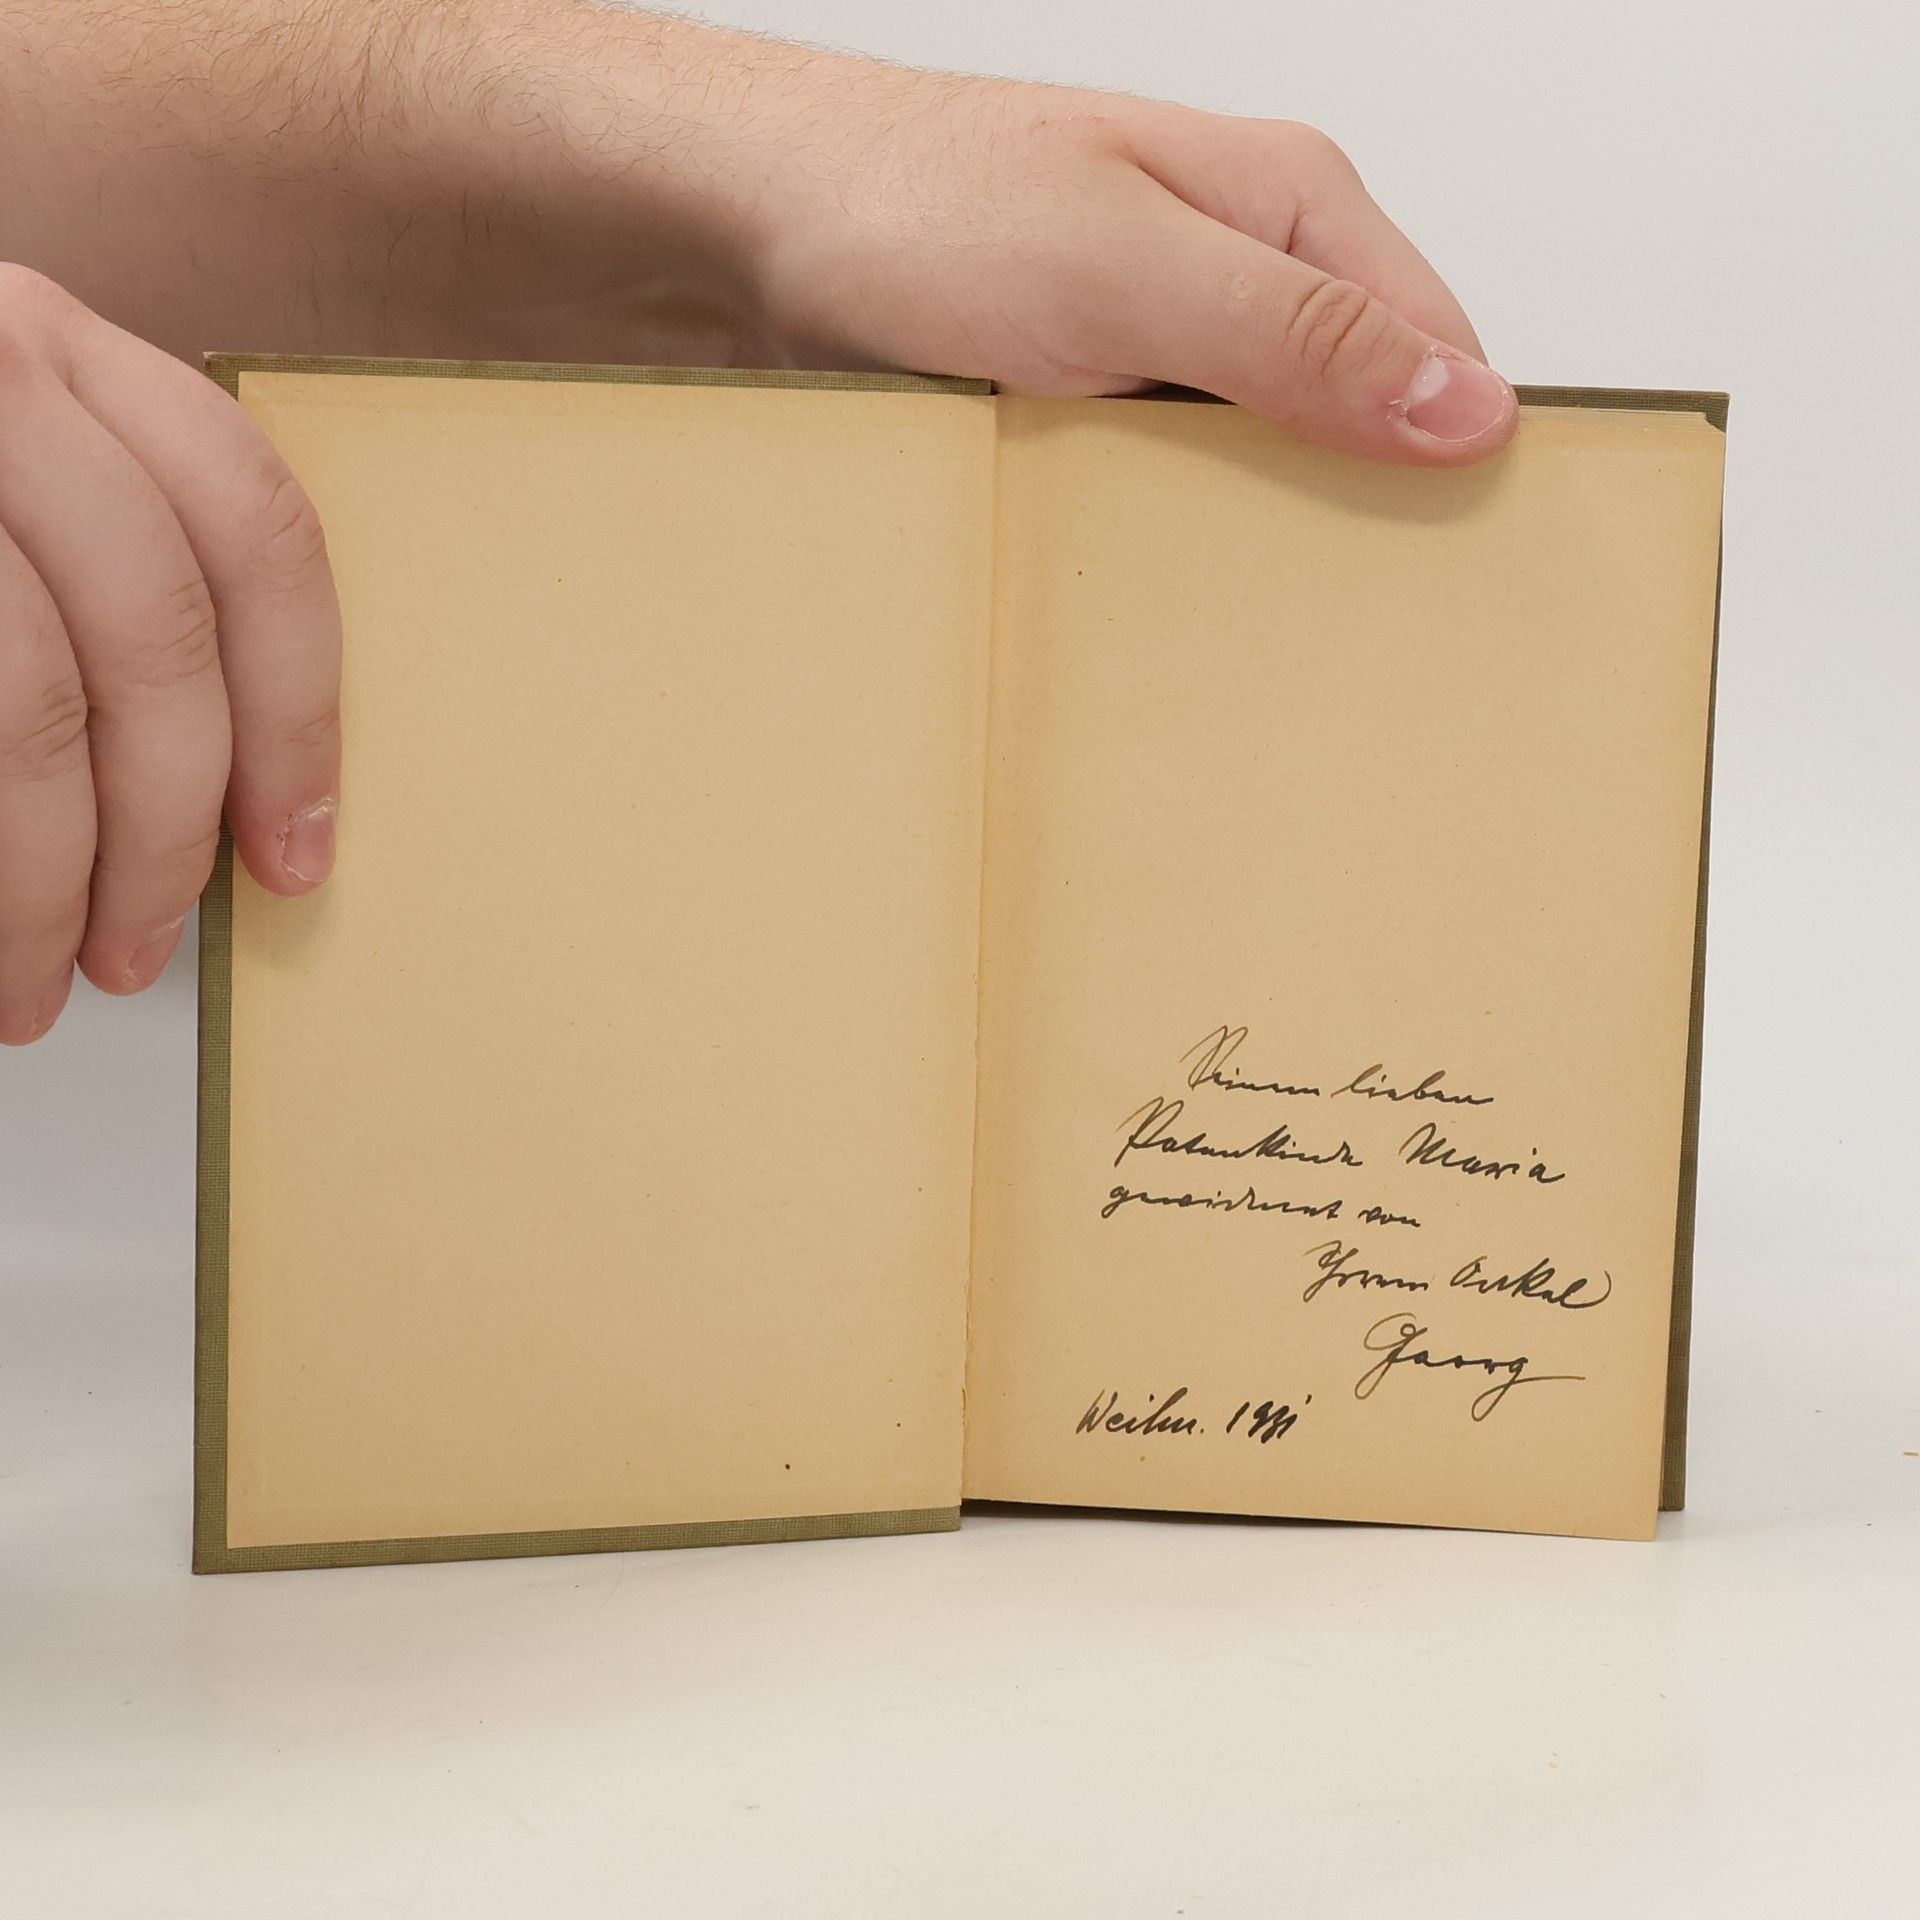 Seinem lieben
Patenkinde Maria
gewidmet von
Ihrem Onkel
Georg
Weihn. 1931